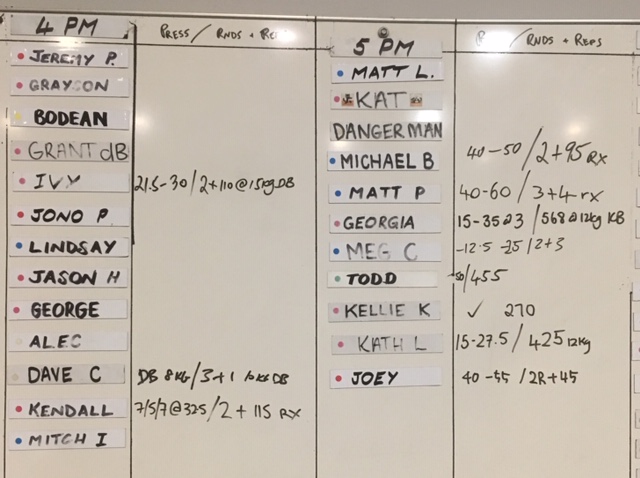 4 PM PRESS / RNDS + REPS
JEREMY P.
GRAYSON
BODEAN
GRANT dB
IVY 21.5-30/2+110@15kg DB
JONO P.
LINDSAY
JASON H
GEORGE
ALEC
DAVE C DB 8KG/3+1 10KG DB
KENDALL 7/5/7@325/2+115 RX
MITCH I
5 PM / RNDS + REPS
MATT L.
KAT
DANGERMAN
MICHAEL B 40-50/2+95 RX
MATT P 40-60/3+4 rx
GEORGIA 15-35 /568@12kg KB
MEG C -12.5 -25/2+3
TODD /455
KELLIE K ✓ 270
KATH L 15-27.5/425 12kg
JOEY 40-55/2R+45